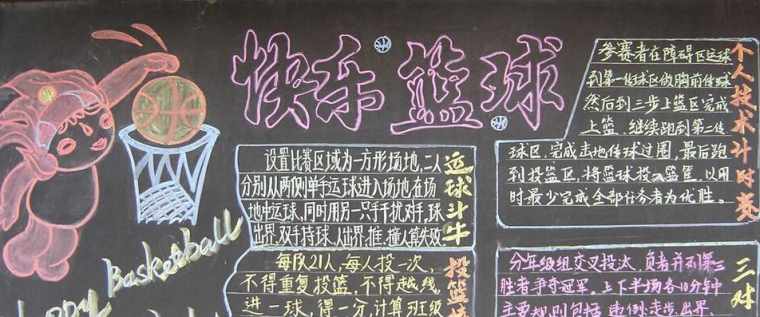 快乐篮球
Happy Basketball
设置比赛区域为一方形场地,二人
分别从两侧单手运球进入场地在场
地中运球,同时用另一只手干扰对手,球
出界,双手持球,人出界,推,撞人算失败
运球斗牛
每队21人,每人投一次,
不得重复投篮,不得越线,
进一球,得一分,计算班级
投篮
参赛者在障碍区运球
到第一传球区做胸前传球
然后到三步上篮区完成
上篮,继续跑到第二传
球区,完成击地传球过圈,最后跑
到投篮区,将篮球投入篮筐,以用
时最少完成全部任务者为优胜。
个人技术计时赛
分年级组交叉投太,负者并列第三
胜者争夺冠军。上下半场各10分钟
主要规则包括
走步,出界
三对